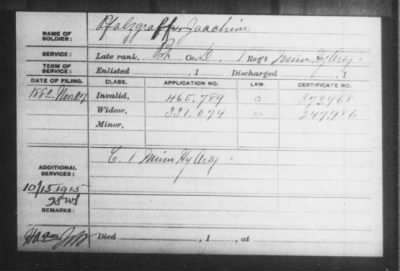 NAME OF SOLDIER: Pfalzgraffer Joachim
SERVICE: Late rank, Co. 1 Reg't Minn Hy Arty
TERM OF SERVICE: Enlisted , 1 Discharged , 1
DATE OF FILING. CLASS. APPLICATION NO. LAW. CERTIFICATE NO.
1882 Nov Invalid, 465,789 372968
Widow, 331,074 247,486
Minor,
ADDITIONAL SERVICES: C. 1 Minn Hy Arty.
10/15 1915
REMARKS:
Died , 1 , at